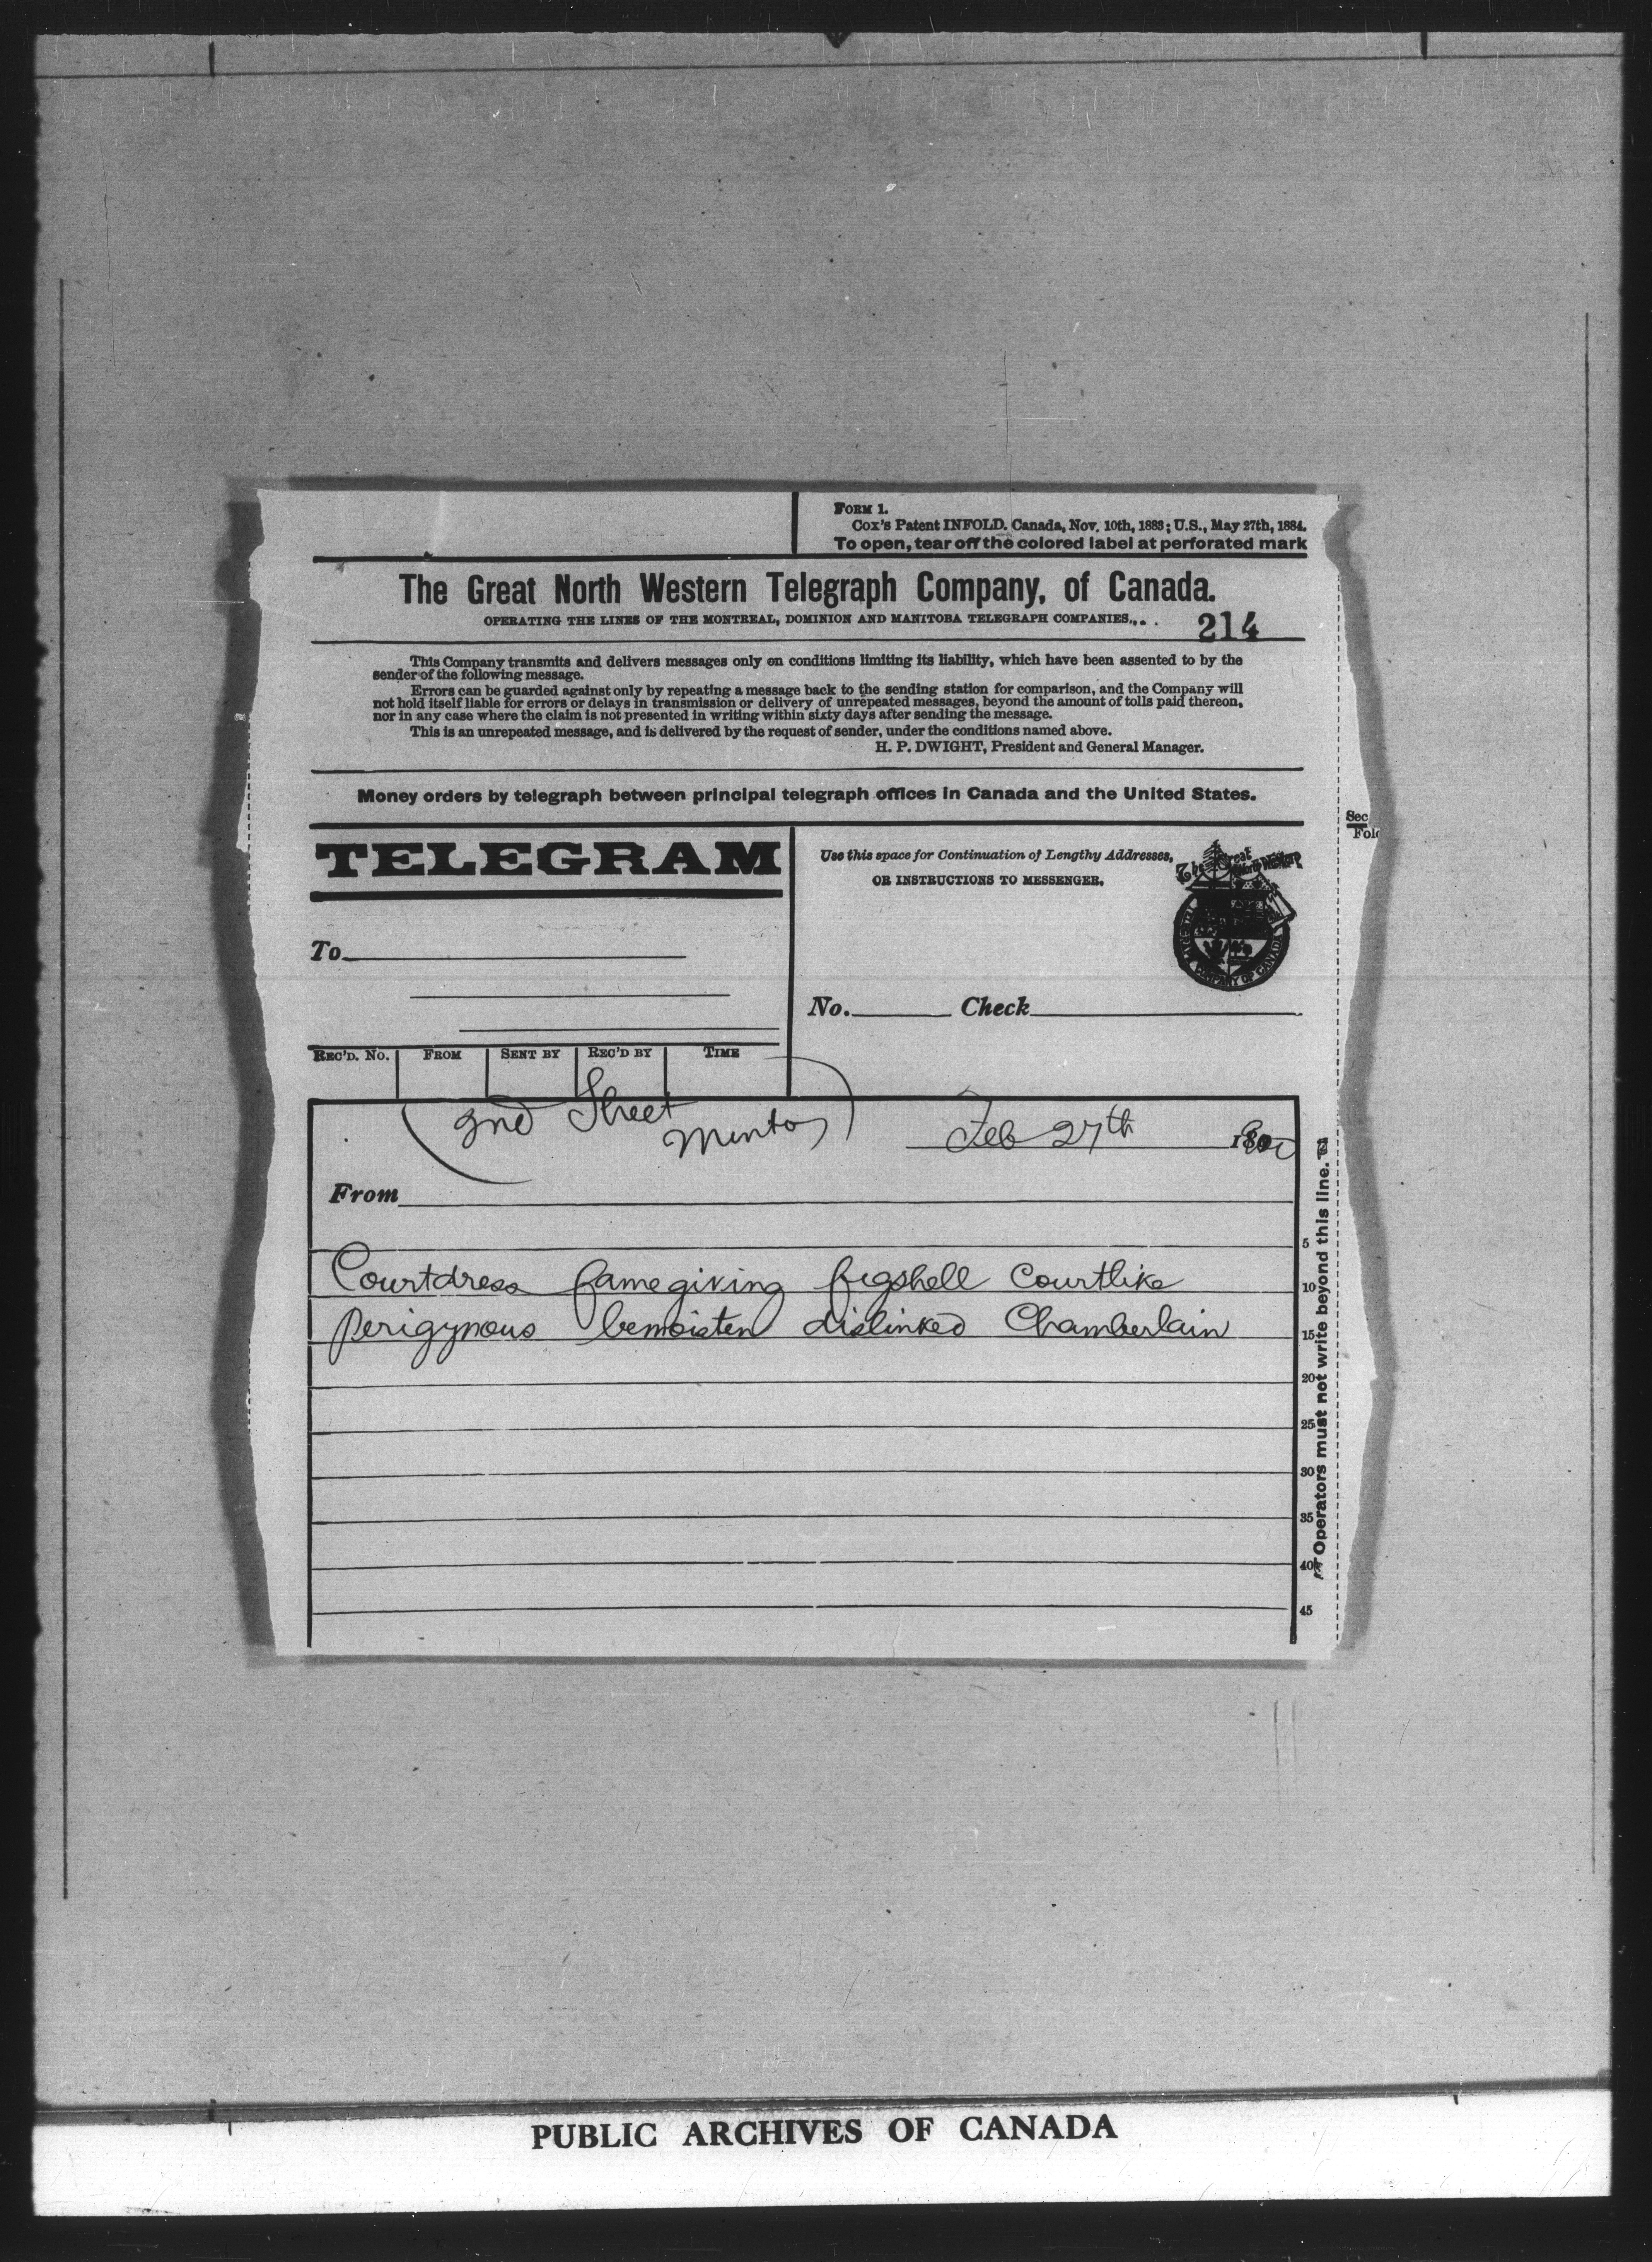 FORM 1.
Cox's Patent INFOLD. Canada, Nov. 10th, 1883; U.S., May 27th, 1884.
To open, tear off the colored label at perforated mark
The Great North Western Telegraph Company, of Canada.
OPERATING THE LINES OF THE MONTREAL, DOMINION AND MANITOBA TELEGRAPH COMPANIES.
214
This Company transmits and delivers messages only on conditions limiting its liability, which have been assented to by the
sender of the following message.
Errors can be guarded against only by repeating a message back to the sending station for comparison, and the Company will
not hold itself liable for errors or delays in transmission or delivery of unrepeated messages, beyond the amount of tolls paid thereon,
nor in any case where the claim is not presented in writing within sixty days after sending the message.
This is an unrepeated message, and is delivered by the request of sender, under the conditions named above.
H. P. DWIGHT, President and General Manager.
Money orders by telegraph between principal telegraph offices in Canada and the United States.
Sec
Fold
TELEGRAM
Use this space for Continuation of Lengthy Addresses,
OR INSTRUCTIONS TO MESSENGER.
The Great North Western
COMPANY OF CANADA
To
No. Check
REC'D. No. FROM SENT BY REC'D BY TIME
2nd Street
Minto
Feb 27th
From
Courtdress famegiving figshell Courtlike
perigynous bemoisten dislinked Chamberlain
5
10
15
20
25
30
35
40
45
Operators must not write beyond this line.
PUBLIC ARCHIVES OF CANADA